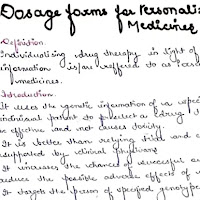 Dosage forms for Personali
Medicines
Definition
Individualizing drug therapy in light of
information is/are reffered to as
medicines.
Introduction.
It uses the genetic information of a
individual patient to select a drug
is effective and not causes toxicity.
It is better than relying trial and
supported by clinical
It increases the chances of successful
reduce the possible adverse effects of
It target the person of specified genotype